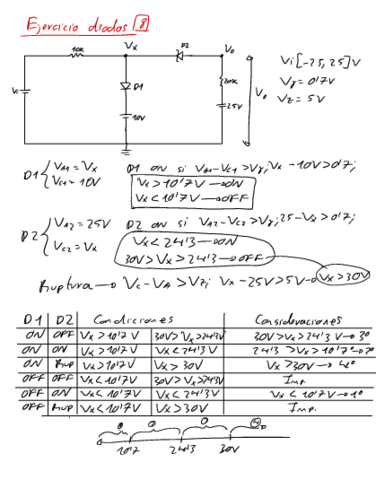 Ejercicio diodos 8
10K Vx D2 Vo
Vi [-25, 25] V
Vγ = 0'7V
Vz = 5V
Vi D1 20K Vo
10V 25V
D1 { VA1 = Vx D1 on si VA1 - VC1 > Vγ; Vx - 10V > 0'7;
VC1 = 10V Vx > 10'7V → ON
Vx < 10'7V → OFF
D2 { VA2 = 25V D2 on si VA2 - VC2 > Vγ; 25 - Vx > 0'7;
VC2 = Vx Vx < 24'3 → ON
30V > Vx > 24'3 → OFF
Ruptura → VC - VA > Vz; Vx - 25V > 5V → Vx > 30V
D1 D2 Condiciones Consideraciones
ON OFF Vx > 10'7V 30V > Vx > 24'3V 30V > Vx > 24'3V → 3º
ON ON Vx > 10'7V Vx < 24'3V 24'3 > Vx > 10'7 → 2º
ON Rup Vx > 10'7V Vx > 30V Vx > 30V → 4º
OFF OFF Vx < 10'7V 30V > Vx > 24'3V Imp.
OFF ON Vx < 10'7V Vx < 24'3V Vx < 10'7V → 1º
OFF Rup Vx < 10'7V Vx > 30V Imp.
10'7 24'3 30V